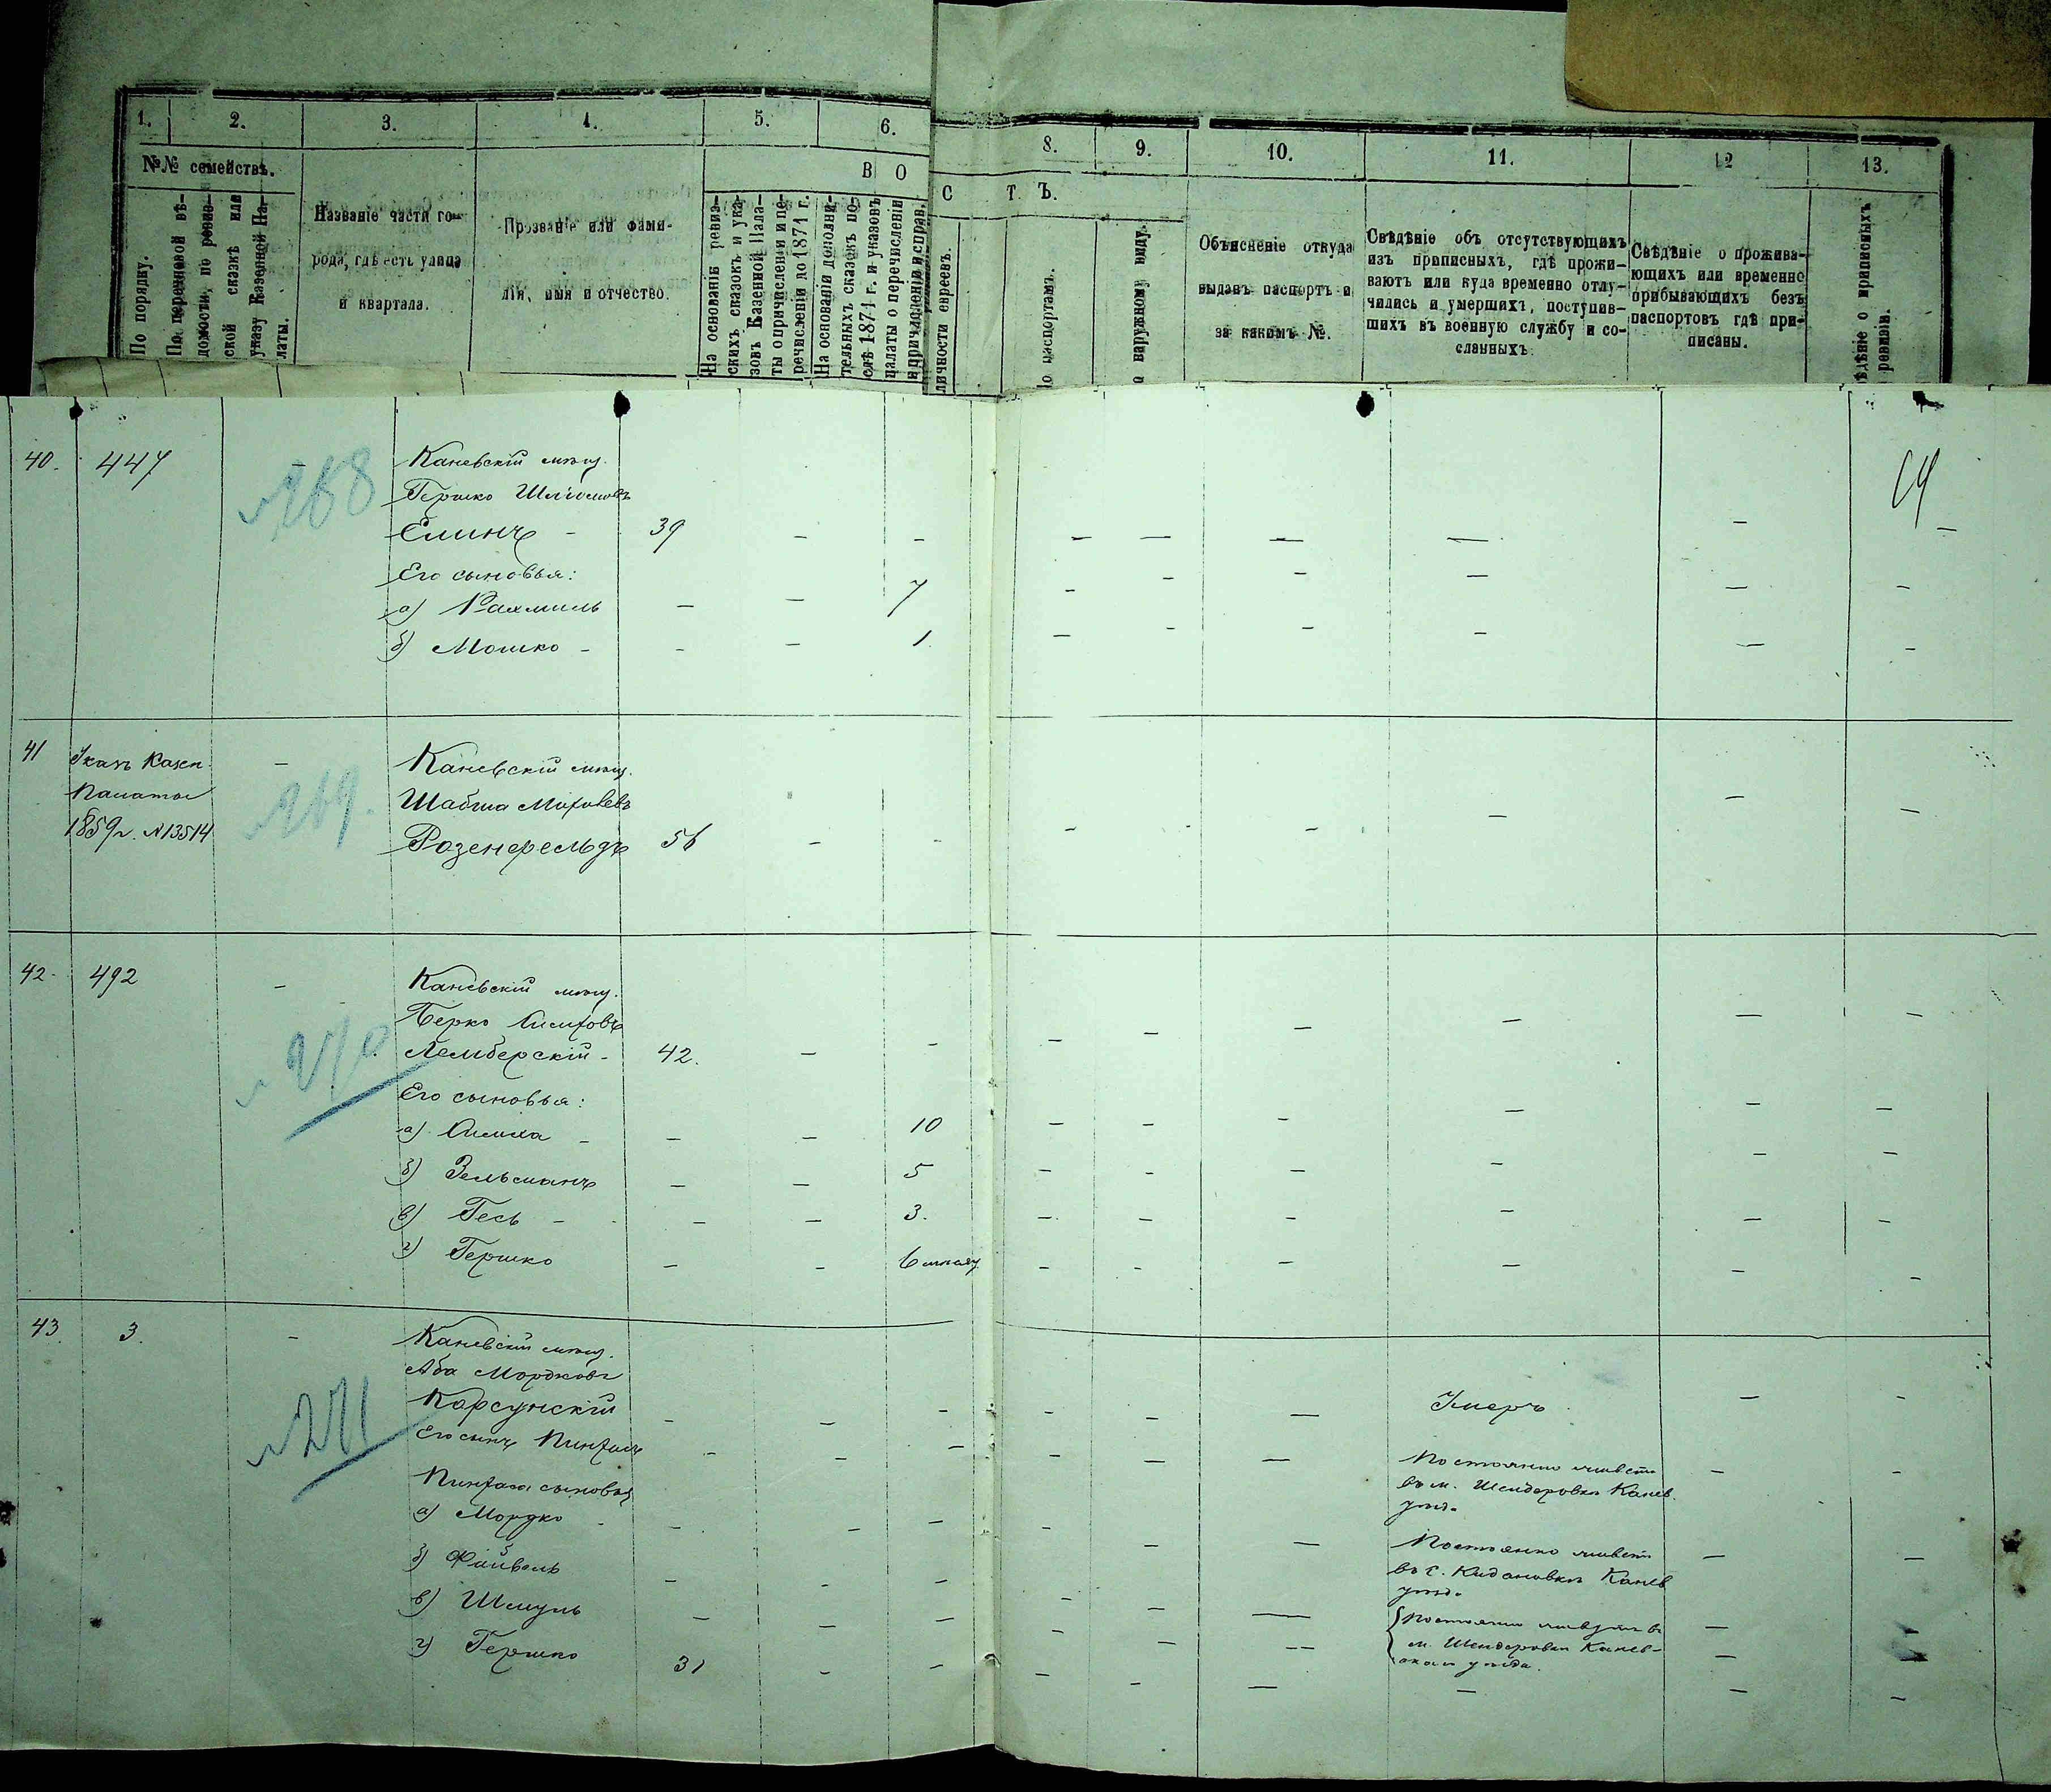 1. 2. 3. 4. 5. 6. 8. 9. 10. 11. 12 13.
№№ семействъ.
В О
С Т Ъ.
По порядку.
По перечневой вѣ-
домости, по ревиз-
ской сказкѣ или
указу Казенной Па-
латы.
Названіе части го-
рода, гдѣ есть улица
и квартала.
Прозваніе или фами-
лія, имя и отчество.
На основаніи ревиз-
скихъ сказокъ и ука-
зовъ Казенной Пала-
ты о причисленіи и пе-
речисленіи до 1871 г.
На основаніи дополни-
тельныхъ сказокъ по-
слѣ 1871 г. и указовъ
палаты о перечисленіи
и причисленіи и справ.
личности евреевъ.
о паспортамъ.
о наружному виду.
Объясненіе откуда
выданъ паспортъ и
за какимъ №.
Свѣдѣніе объ отсутствующихъ
изъ приписныхъ, гдѣ прожи-
ваютъ или куда временно отлу-
чились и умершихъ, поступив-
шихъ въ военную службу и со-
сланныхъ.
Свѣдѣніе о прожива-
ющихъ или временно
прибывающихъ безъ
паспортовъ гдѣ при-
писаны.
ѣдѣніе о приписныхъ
ревизіи.
40. 447 – Каневскій мѣщ.
№268
Гершко Шліомовъ
Елинъ – 39 – – – – – – – –
Его сыновья:
а) Рахмиль – – 7 – – – – – –
б) Мошко – – – 1. – – – – – –
41 Указъ Казен. – Каневскій мѣщ.
Палаты Шабша Мошковъ
1859 г. №13514 №269. Розенфельдъ 56 – – – – – – –
42. 492 – Каневскій мѣщ.
Берко Симховъ
№270. Лемберскій – 42. – – – – – – – –
Его сыновья:
а) Симха – – – 10 – – – – – –
б) Зельманъ – – 5 – – – – – –
в) Гесь – – – 3. – – – – – –
г) Гершко – – 6 мѣсяц. – – – – – –
43. 3. – Каневскій мѣщ.
Аба Мордковъ
№271 Корсунскій – – – – – – Умеръ – –
Его сынъ Пинхасъ – – – – – – Постоянно живетъ – –
въ м. Шендеровкѣ Канев.
уѣз.
Пинхаса сыновья
а) Мордко – – – – – – – Постоянно живетъ – –
въ с. Кидановкѣ Канев.
уѣзд.
б) Файвель – – – – – –
в) Шмуль – – – – – – Постоянно живутъ въ –
м. Шендеровкѣ Канев-
скаго уѣзда. –
г) Гершко 31 – – – – – – – –